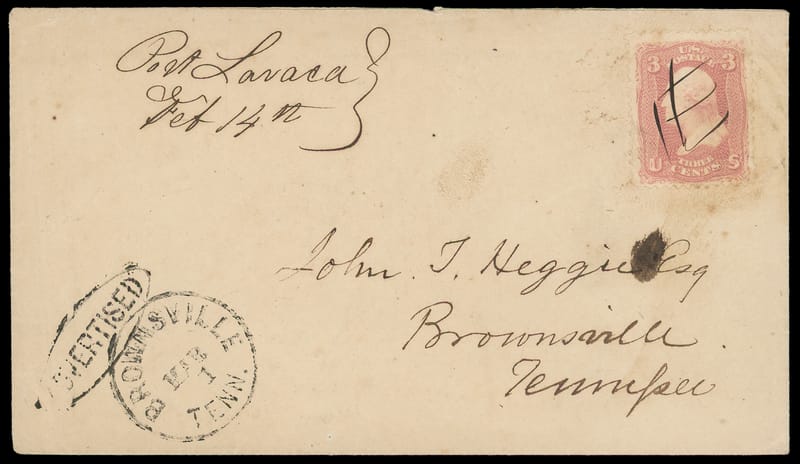 Port Lavaca
Feb 14th
3 U.S. 3
POSTAGE
THREE
CENTS
U S
John T. Heggie Esq
Brownsville
Tennessee
ADVERTISED
BROWNSVILLE
MAR
1
TENN.